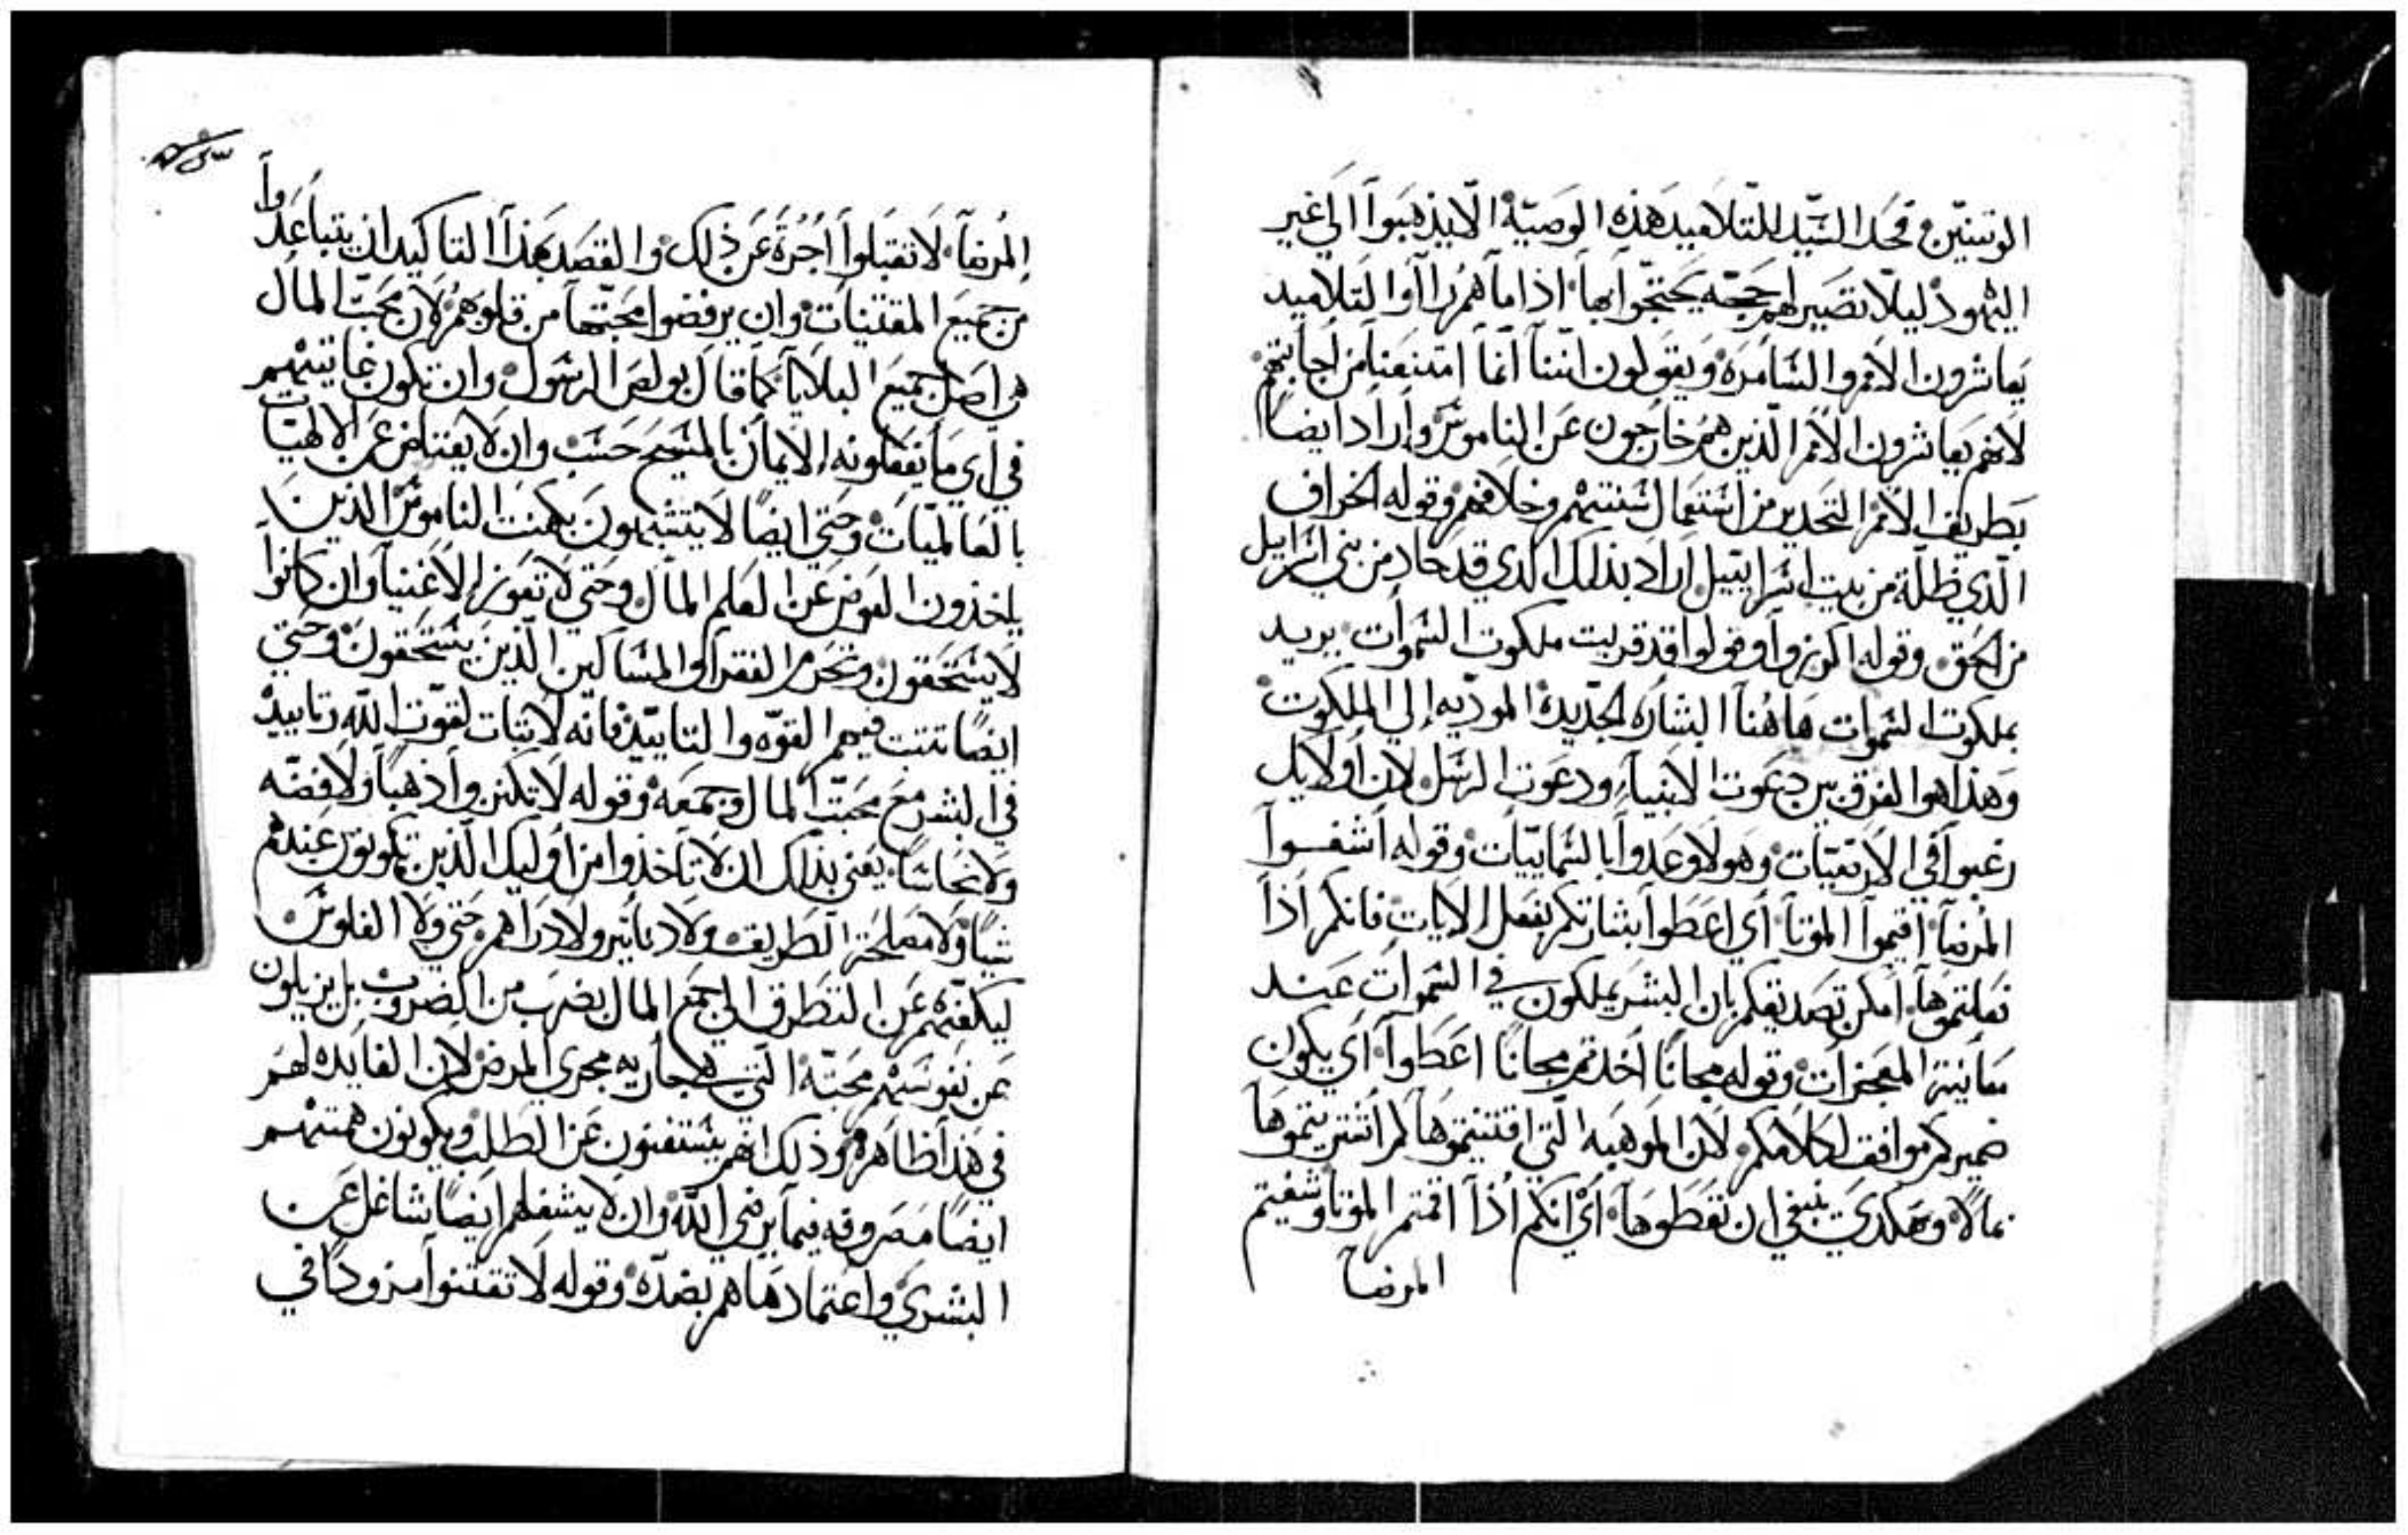 الوتنيّين فحدا السّيد للتلاميد هذه الوصيّة الّا يذهبوا الي غير
اليهود ليلّا تصير لهم حجّه يحتجّوا بها اذا ما هم راوا التلاميد
يعاشرون الامم والسامره ويقولون انّنا انّما امتنعنا من اجابتهم
لانهم يعاشرون الامم الّذين هم خارجون عن الناموس واراد ايضاً
بطريق الامم التحدير من استعمال سنتهم وخلافهم وقوله الخراف
الّذي ظلّة من بيت اسراييّل اراد بذلك الذي قد حاد من بني اسراييل
من الحق وقوله اكرزوا وقولوا قد قربت ملكوت السّموات يريد
بملكوت السّموات هاهنا البشاره الجديدة الموديه الي الملكوت
وهذا هوا الفرق بين دعوت الانبيا ودعوت الرسل لان اولايك
رغبوا في الارتقيّات وهولا وعدوا بالسّماييات وقوله اشفوا
المرضآ اقيموا الموتآ اي اعطوا بشارتكم بفعل الايات فانكم اذا
فعلتموها امكن تصديقكم بان البشر يملكون في السّموات عند
معاينة المعجزات وقوله مجاناً اخدتم مجاناً اعطوا اي يكون
ضميركم موافق لكلامكم لان الموهبه الّتي اقتنيتموها لم اشتريتموها
بمالاً وهكدي ينبغي ان تعطوها اي انكم اذا اقمتم الموتا وشفيتم
المرضا
المرضآ لا تقبلوا اجرة عن ذلك والقصد بهذا التاكيد ان يتباعدوا
من جميع المقتنيات وان يرفضوا محبّتها من قلوبهم لان محبّت المال
هي اصل جميع البلايا كما قال بولص الرسول وان تكون غايتهم
في اي ما يفعلونه الايمان بالمسيح حسب وان لا يعتاض عن الالهيّات
بالعالميّات وحتي ايضاً لا يتشبهون بكهنت الناموس الذين
ياخذون العوض عن العلم المال وحتي لا تفوز الاغنيا وان كانوا
لا يستحقون وتحرم الفقرا والمساكين الّذين يستحقون وحتي
ايضاً تتبت فيهم القوّه والتاييد فانه لا تبات لقوّت اللّه وتاييده
في البشر مع محبّت المال وجمعه وقوله لا تكنزوا ذهباً ولا فضّه
ولا نحاساً يعني بذلك ان لا تاخذوا من اوليك الّذين تكونون عندهم
شياً ولا مصلحة الطريق ولا دنانير ولا دراهم حتي ولا الفلوس
ليكفّهم عن التطرق الي جمع المال بضرب من الضروب بل يزيلون
عن نفوسهم محبّة الّتي هي جاريه مجري المرض لان الفايده لهم
في هذا ظاهره وذلك انهم يستغنون عن الطلب ويكونون همتهم
ايضاً مصروفه فيما يرضي اللّه وان لا يشغلهم ايضاً شاغل عن
البشري واعتمادها هم بضدّه وقوله لا تقتنوا مزوداً في